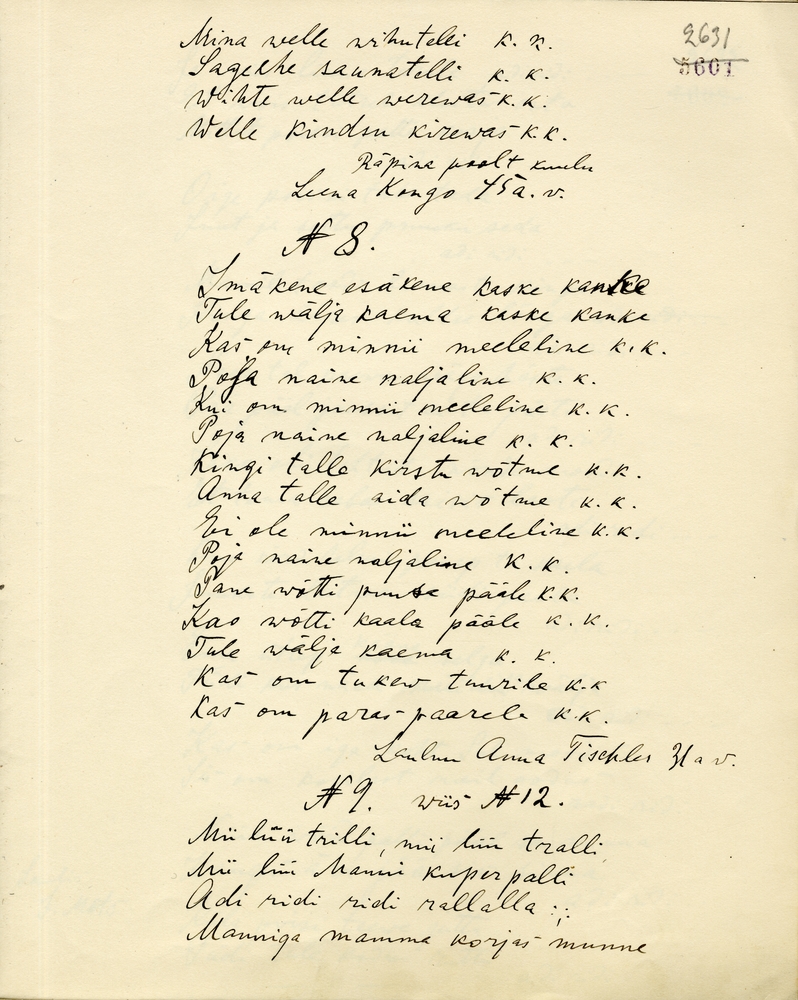 2631
5601
Mina welle wihutelli k. k.
Sagehhe saunatelli k. k.
Wihte welle werewas k. k.
Welle kindsu kirewas k. k.
Räpina poolt kuulu
Leena Kongo 45 a. v.
N 8.
Imäkene esäkene kaske kanke
Tule wälja kaema kaske kanke
Kas om minnii meeleline k. k.
Poja naine naljaline k. k.
Kui om minnii meeleline k. k.
Poja naine naljaline k. k.
Kingi talle kirstu wõtme k. k.
Anna talle aida wõtme k. k.
Ei ole minnii meeleline k. k.
Poja naine naljaline k. k.
Pane wõtti puusa pääle k. k.
Kao wõtti kaala pääle k. k.
Tule wälja kaema k. k.
Kas om tukew tuurile k. k
Kas om paras paarele k. k.
Laulnu Anna Tischler 31 a v.
N 9. wiis N 12.
Mii lüü trilli, mii lüü tralli
Mii lüü Manni kuperpalli
Adi ridi ridi rallalla :;:
Manniga mamma korjas munne